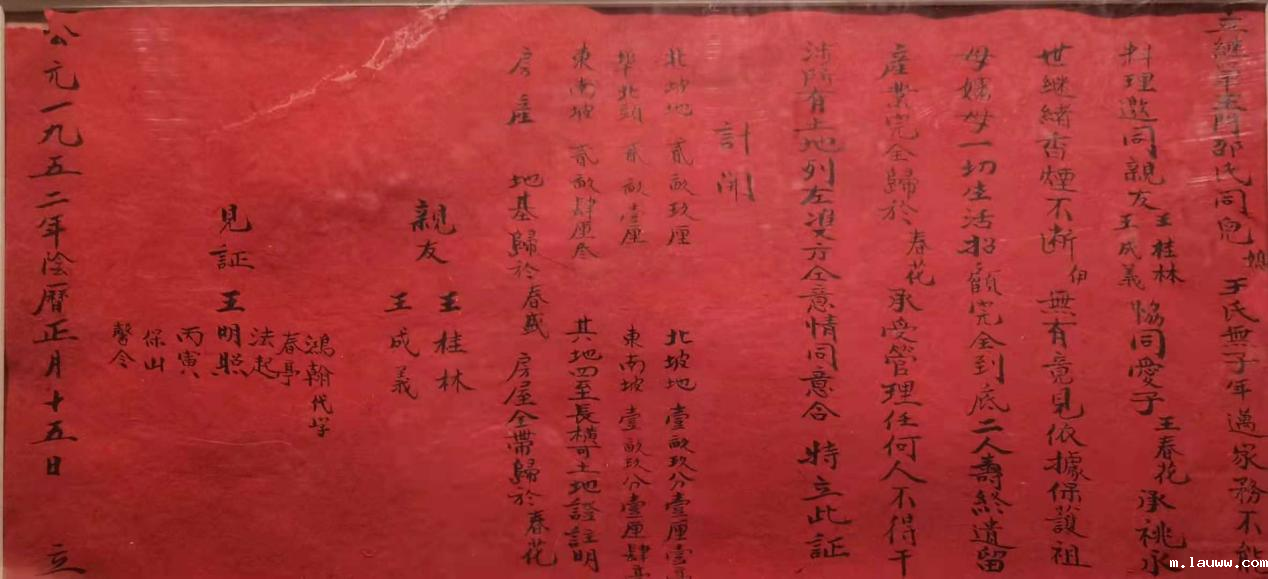 立繼單王門邵氏同兒媳王氏無子年邁家務不能
料理邀同親友王桂林王成義協同愛子王春花承祧永
世继緒香煙不断伯無有竟見依據保護祖
母嬸母一切生活招顧完全到底二人壽終遺留
產業完全歸於春花承受管理任何人不得干
涉所有土地列左双方全意情同意合特立此証
計開
北坡地貳畝玖厘 北坡地壹畝玖分壹厘壹毫
北頭貳畝壹厘 東南坡壹畝玖分壹厘肆毫
東南坡貳畝肆厘叁 其地四至長橫弓土地證註明
房產 地基歸於春盛 房屋全帶歸於春花
親友 王桂林 王成義
鴻翰代字
見証 王明照 春亭 法起 丙寅 保山 馨令
公元一九五二年陰曆正月十五日 立
m.lauww.com